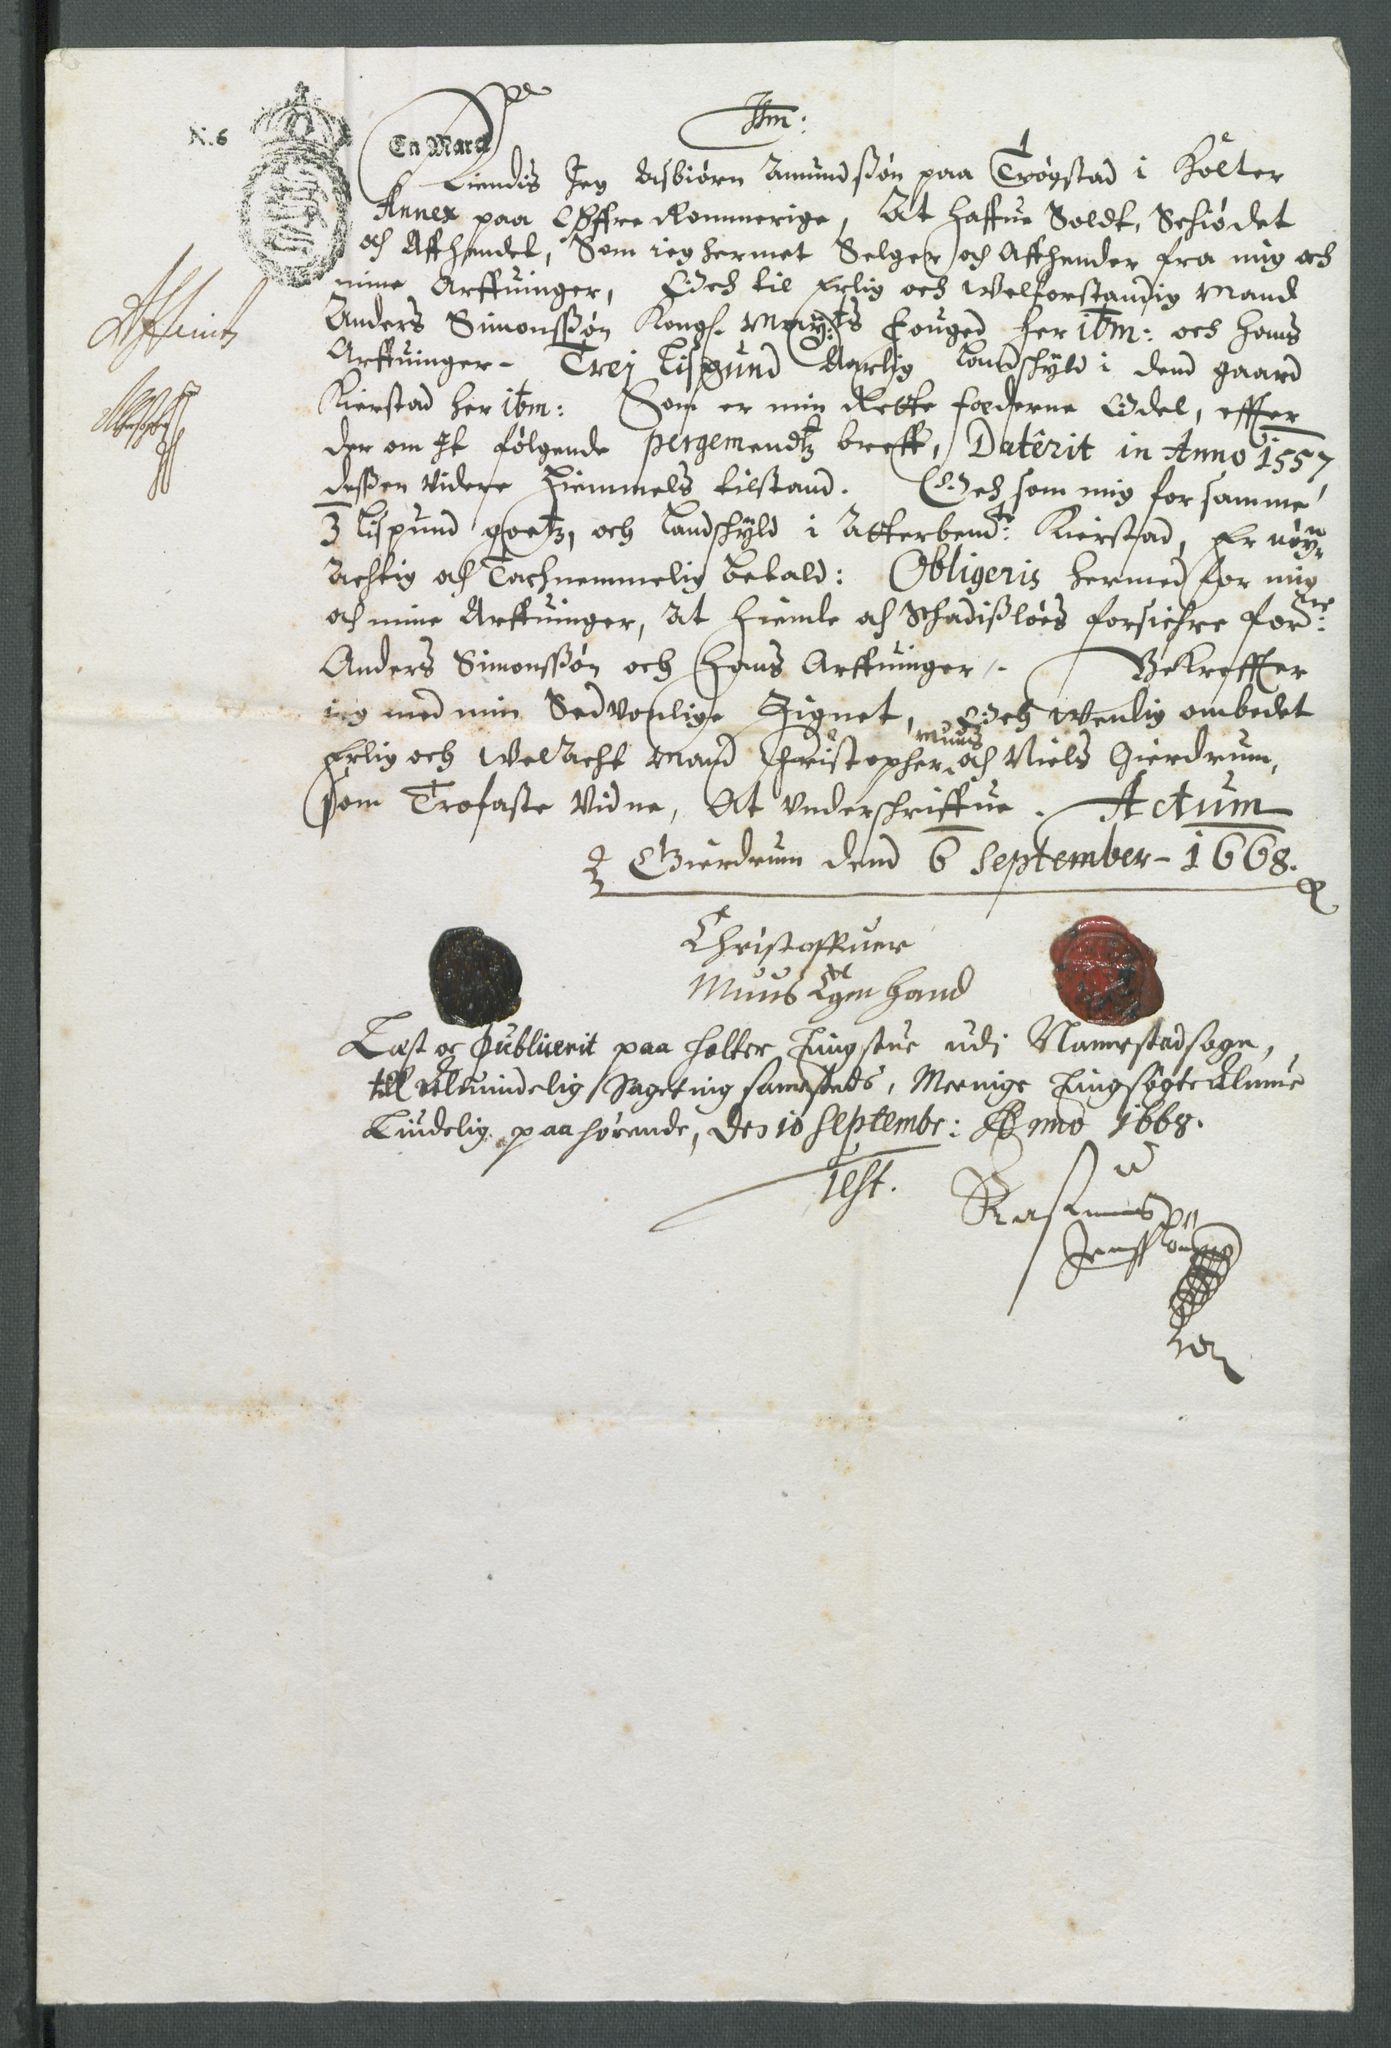 N. 6
En Marck
Itm:
Kiendis Jeg Asbiørn Amundssøn paa Trøgstad i Holter
Annex paa Øffre Rommerige, At haffue Soldt, Schiødet
och Affhendet, Som ieg hermet Selger och Affhender fra mig och
mine Arffuinger, Och til Erlig och Welforstandig Mand
Anders Simonssøn Kongl. Mayts: Fouged her ibm: och hans
Arffuinger - Trej Lispund Aarlig Landschyld i dend gaard
Kierstad her ibm: Som er min Rette fæderne Odel, effter
der om It følgende pergemendtz breff, Daterit in Anno 1557,
dessen Videre Hiemmels tilstand. Och som mig for samme
3 Lispund goetz, och Landschyld i Atterbendte: Kierstad, Er nøy-
achtig och Tachnemmelig betald: Obligeris hermed for mig
och mine Arffuinger, At hiemle och Schadissløes forsichre forne:
Anders Simonssøn och Hans Arffuinger. Bekreffter
ieg med min Sedvonlige Zignet, Och Wenlig ombedet
Erlig och WelAcht Mand Christopher Muus och Niels Gierdrum,
som Trofaste Vidne, At underschriffue. Actum
Gierdrum dend 6 September - 1668.
Christoffuer
Muus Egen Hand
Læst oc Publicerit paa Holter tingstue udj Nannestad sogn,
till Almindelig Sageting samesteds, Meenige tingsøgte Almue
Liudelig paahørende, den 10 Septembr: Anno 1668.
Test.
Rasmus
Jensssøn